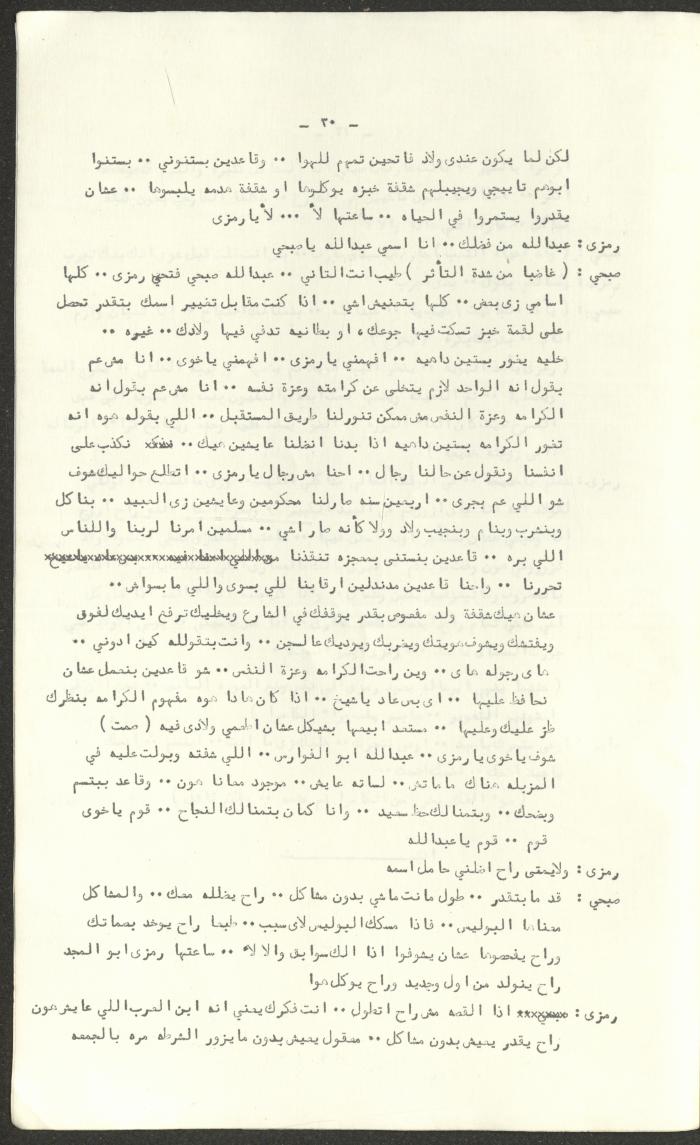 - ٣٠ -
لكن لما يكون عندى ولاد فاتحين تمهم للهوا ٠٠ وقاعدين بستنوني ٠٠ بستنوا
ابوهم تاييجي ويجيبلهم شقفة خبزه يوكلوها او شقفة هدمه يلبسوها ٠٠ عشان
يقدروا يستمروا في الحياه ٠٠ ساعتها لأ ٠٠٠ لأ يا رمزى
رمزى : عبدالله من فضلك ٠٠ انا اسمي عبدالله ياصبحي
صبحي : ( غاضبا من شدة التأثر ) طيب انت التاني ٠٠ عبدالله صبحي فتحي رمزى ٠٠ كلها
اسامي زى بعض ٠٠ كلها بتعنيش اشي ٠٠ اذا كنت مقابل تغيير اسمك بتقدر تحصل
على لقمة خبز تسكت فيها جوعك، او بطانيه تدفي فيها ولادك ٠٠ غيره ٠٠
خليه يغور بستين داهيه ٠٠ افهمني يا رمزى ٠٠ افهمني ياخوى ٠٠ انا مش عم
بقول انه الواحد لازم يتخلى عن كرامته وعزة نفسه ٠٠ انا مش عم بقول انه
الكرامه وعزة النفس مش ممكن تنورلنا طريق المستقبل ٠٠ اللي بقوله هوه انه
تغور الكرامه بستين داهيه اذا بدنا انضلنا عايشين هيك ٠٠ نكذب على
انفسنا ونقول عن حالنا رجال ٠٠ احنا مش رجال يا رمزى ٠٠ اتطلع حواليك شوف
شو اللي عم بجرى ٠٠ اربعين سنه صارلنا محكومين وعايشين زى العبيد ٠٠ بناكل
وبنشرب وبنام وبنجيب ولاد وولا كأنه صار اشي ٠٠ مسلمين امرنا لربنا وللناس
اللي بره ٠٠ قاعدين بنستنى بمعجزه تنقذنا
تحررنا ٠٠ واحنا قاعدين مدندلين ارقابنا للي بسوى واللي ما بسواش ٠٠
عشان هيك شقفة ولد مفعوص بقدر يوقفك في الشارع ويخليك ترفع ايديك لفوق
ويفتشك ويشوف هويتك ويضربك ويوديك عالسجن ٠٠ وانت بتقولله كين ادوني ٠٠
هاى رجوله هاى ٠٠ وين راحت الكرامه وعزة النفس ٠٠ شو قاعدين بنعمل عشان
نحافظ عليها ٠٠ اى بس عاد ياشيخ ٠٠ اذا كان هادا هوه مفهوم الكرامه بنظرك
طز عليك وعليها ٠٠ مستعد ابيعها بشيكل عشان اطعمي ولادى فيه ( صمت )
شوف ياخوى يا رمزى ٠٠ عبدالله ابو الفوارس ٠٠ اللي شفته وبولت عليه في
المزبله هناك ما ماتش ٠٠ لساته عايش ٠٠ موجود معانا هون ٠٠ وقاعد ببتسم
وبضحك ٠٠ وبتمنالك حظ سعيد ٠٠ وانا كمان بتمنالك النجاح ٠٠ قوم ياخوى
قوم ٠٠ قوم ياعبدالله
رمزى : ولايمتى راح اضلني حامل اسمه
صبحي : قد ما بتقدر ٠٠ طول مانت ماشي بدون مشاكل ٠٠ راح يظلله معك ٠٠ والمشاكل
معناها البوليس ٠٠ فاذا مسكك البوليس لاى سبب ٠٠ طبعا راح يوخد بصماتك
وراح يفحصوها عشان يشوفوا اذا الك سوابق والا لا ٠٠ ساعتها رمزى ابو المجد
راح ينولد من اول وجديد وراح يوكل هوا
رمزى : اذا القصه مش راح اتطول ٠٠ انت فكرك يعني انه ابن العرب اللي عايش هون
راح يقدر يعيش بدون مشاكل ٠٠ معقول يعيش بدون ما يزور الشرطه مره بالجمعه